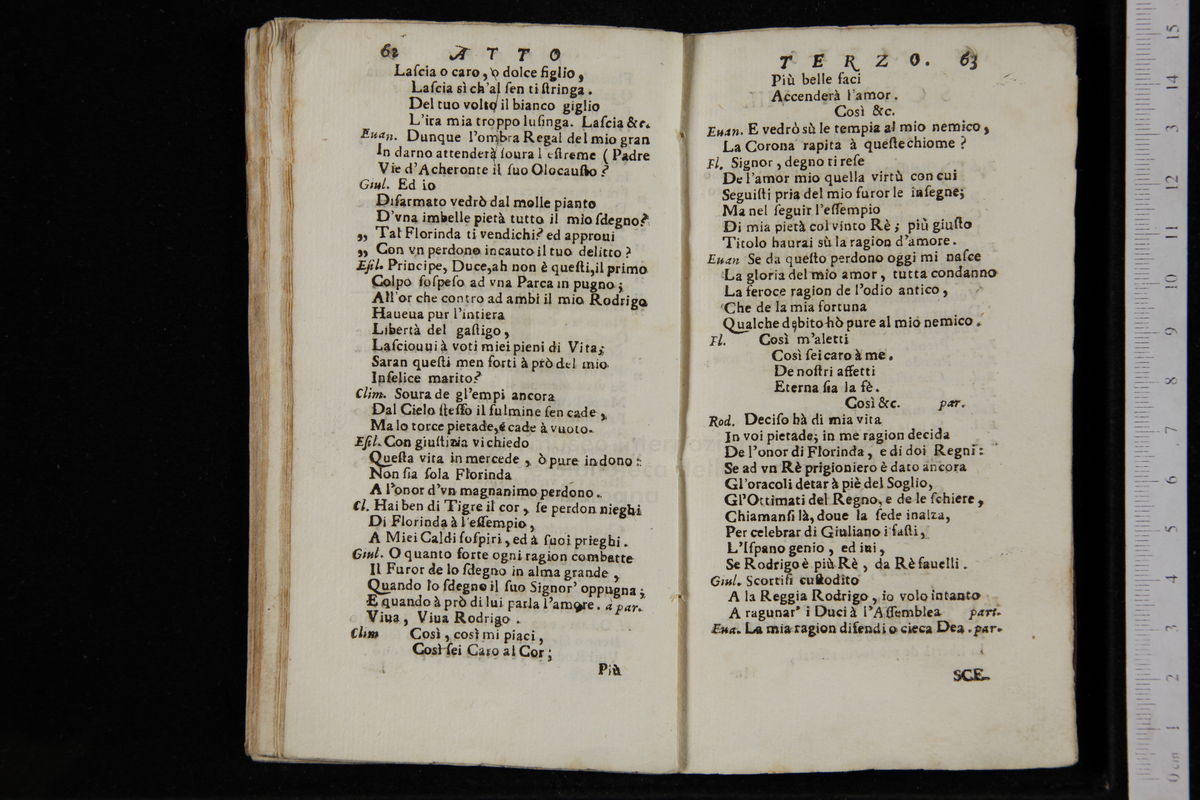 62 ATTO
Laſcia o caro, o dolce figlio,
Laſcia sì ch'al ſen ti ſtringa.
Del tuo volto il bianco giglio
L'ira mia troppo luſinga. Laſcia &c.
Euan. Dunque l'ombra Regal del mio gran
In darno attenderà ſoura l eſtreme ( Padre
Vie d'Acheronte il ſuo Olocauſto ?
Giul. Ed io
Diſarmato vedrò dal molle pianto
D'vna imbelle pietà tutto il mio ſdegno?
„ Tal Florinda ti vendichi? ed approui
„ Con vn perdono incauto il tuo delitto ?
Eſil. Principe, Duce,ah non è queſti,il primo
Colpo ſoſpeſo ad vna Parca in pugno;
All'or che contro ad ambi il mio Rodrigo
Haueua pur l'intiera
Libertà del gaſtigo,
Laſciouui à voti miei pieni di Vita;
Saran queſti men forti à prò del mio
Infelice marito?
Clim. Soura de gl'empi ancora
Dal Cielo ſteſſo il fulmine ſen cade,
Ma lo torce pietade,é cade à vuoto.
Eſil. Con giuſtizia vi chiedo
Queſta vita in mercede, ò pure in dono:
Non ſia ſola Florinda
A l'onor d'vn magnanimo perdono.
Cl. Hai ben di Tigre il cor, ſe perdon nieghi
Di Florinda à l'eſſempio,
A Miei Caldi ſoſpiri, ed à ſuoi prieghi.
Giul. O quanto forte ogni ragion combatte
Il Furor de lo ſdegno in alma grande,
Quando lo ſdegno il ſuo Signor' oppugna;
E quando à prò di lui parla l'amore. a par.
Viua, Viua Rodrigo.
Clim Così, così mi piaci,
Così ſei Caro al Cor;
Più
TERZO. 63
Più belle faci
Accenderà l'amor.
Così &c.
Euan. E vedrò sù le tempia al mio nemico,
La Corona rapita à queſte chiome ?
Fl. Signor, degno ti reſe
De l'amor mio quella virtù con cui
Seguiſti pria del mio furor le inſegne;
Ma nel ſeguir l'eſſempio
Di mia pietà col vinto Rè; più giuſto
Titolo haurai sù la ragion d'amore.
Euan Se da queſto perdono oggi mi naſce
La gloria del mio amor, tutta condanno
La feroce ragion de l'odio antico,
Che de la mia fortuna
Qualche debito hò pure al mio nemico.
Fl. Così m'aletti
Così ſei caro à me.
De noſtri affetti
Eterna ſia la fè.
Così &c. par.
Rod. Deciſo hà di mia vita
In voi pietade; in me ragion decida
De l'onor di Florinda, e di doi Regni:
Se ad vn Rè prigioniero è dato ancora
Gl'oracoli detar à piè del Soglio,
Gl'Ottimati del Regno, e de le ſchiere,
Chiamanſi là, doue la ſede inalza,
Per celebrar di Giuliano i faſti,
L'Iſpano genio, ed iui,
Se Rodrigo è più Rè, da Rè fauelli.
Giul. Scortiſi cuſtodito
A la Reggia Rodrigo, io volo intanto
A ragunar' i Duci à l'Aſſemblea part.
Eua. La mia ragion difendi o cieca Dea. par.
SCE-